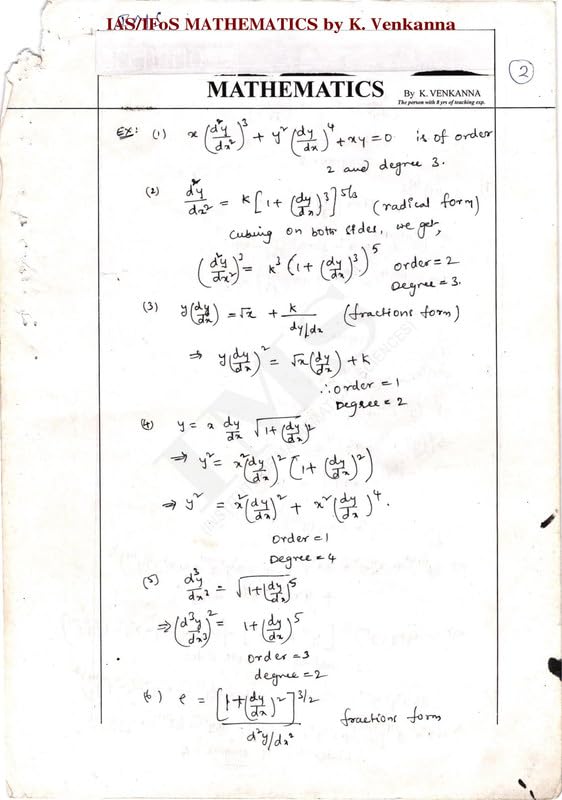 IAS/IFoS MATHEMATICS by K. Venkanna
2
MATHEMATICS
By K. VENKANNA
The person with 8 yrs of teaching exp.
Ex: (1) x (d²y/dx²)³ + y² (dy/dx)⁴ + xy = 0 is of order
2 and degree 3.
(2) d²y/dx² = k [1 + (dy/dx)³]^5/3 (radical form)
Cubing on both sides, we get,
(d²y/dx²)³ = k³ (1 + (dy/dx)³)⁵ order = 2
Degree = 3.
(3) y(dy/dx) = √x + k/(dy/dx) (fractions form)
⇒ y(dy/dx)² = √x (dy/dx) + k
∴ order = 1
Degree = 2
(4) y = x dy/dx √(1 + (dy/dx)²)
⇒ y² = x² (dy/dx)² (1 + (dy/dx)²)
⇒ y² = x² (dy/dx)² + x² (dy/dx)⁴.
Order = 1
Degree = 4
(5) d³y/dx³ = √(1 + (dy/dx)⁵)
⇒ (d³y/dx³)² = 1 + (dy/dx)⁵
order = 3
degree = 2
(6) ρ = [1 + (dy/dx)²]^3/2 / (d²y/dx²) fractions form
IMS